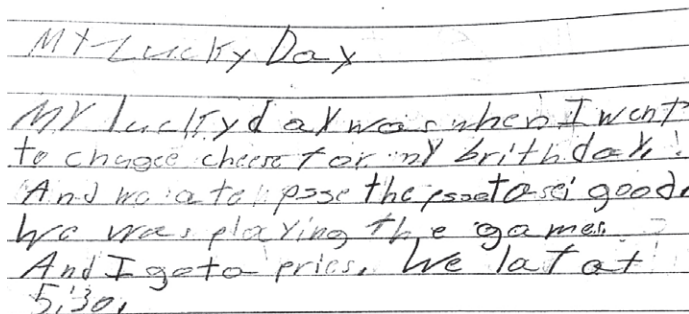 My Lucky Day
My lucky day was when I went
to chugee cheese for my brithday.
And we ate psse the psset a sei good.
We was playing the games.
And I got a pries. We lat at
5:30.